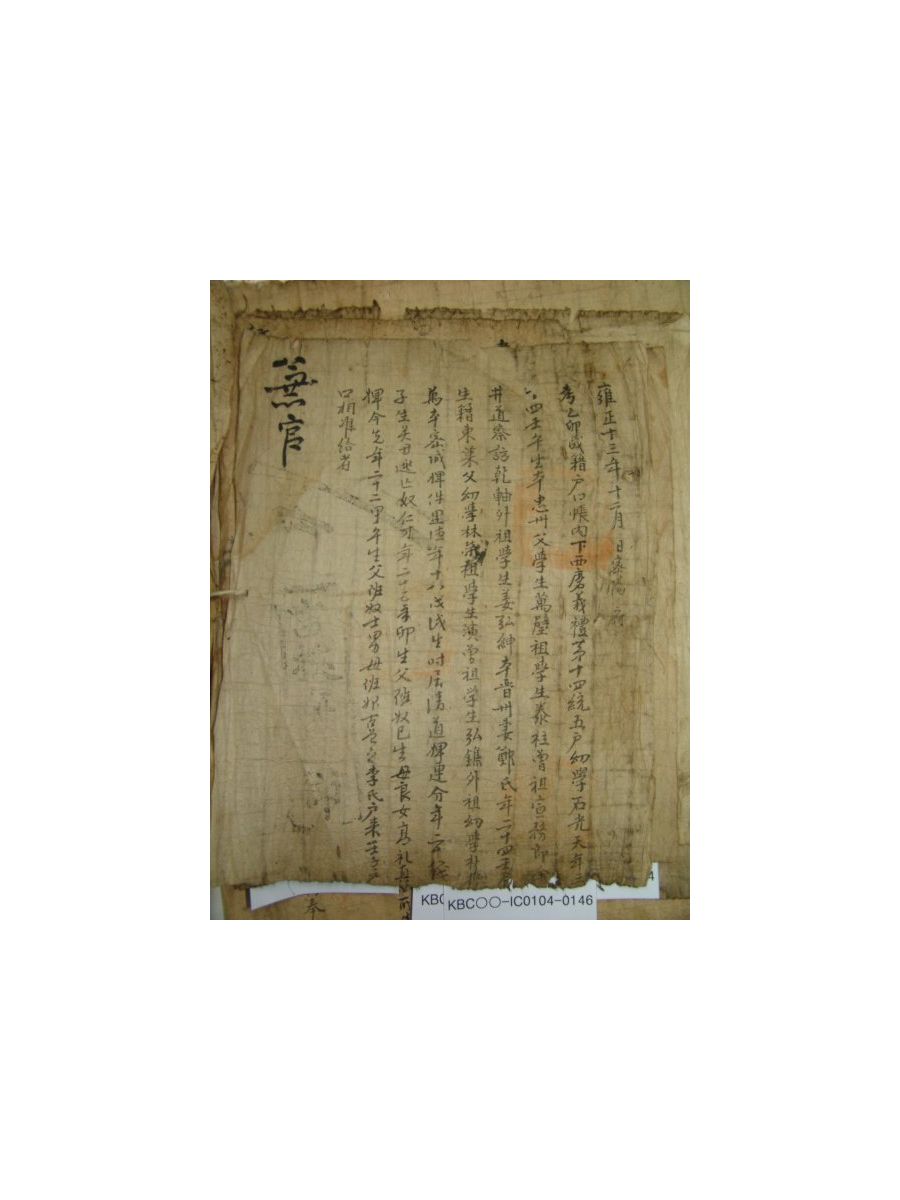 雍正十三年十二月 日密陽府
考乙卯成籍戶口帳內下西磨義禮苐十四統五戶幼學石光天年三
四壬午生本忠州父學生萬璧祖學生泰柱曾祖宣務郎
井道察訪乾軸外祖學生姜弘紳本晋州妻鄭氏年二十四壬
生籍東萊父幼學林 祖學生演曾祖学生弘鐎外祖幼學朴
萬本密城婢 年十八戊戌生時居淸道婢連分年
子生 逃亡奴仁 年二十 卯生父班奴已生母良女 礼
婢今 年二十二甲午生父班奴士男母班婢古 李氏戶來
口相准給者
兼官
奉
KBC
4
KBC○○-IC0104-0146